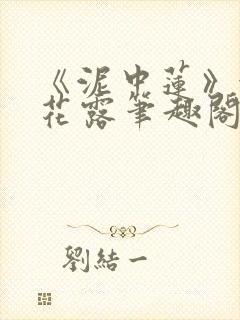 《泥中蓮》
花露筆趣閣
劉結一